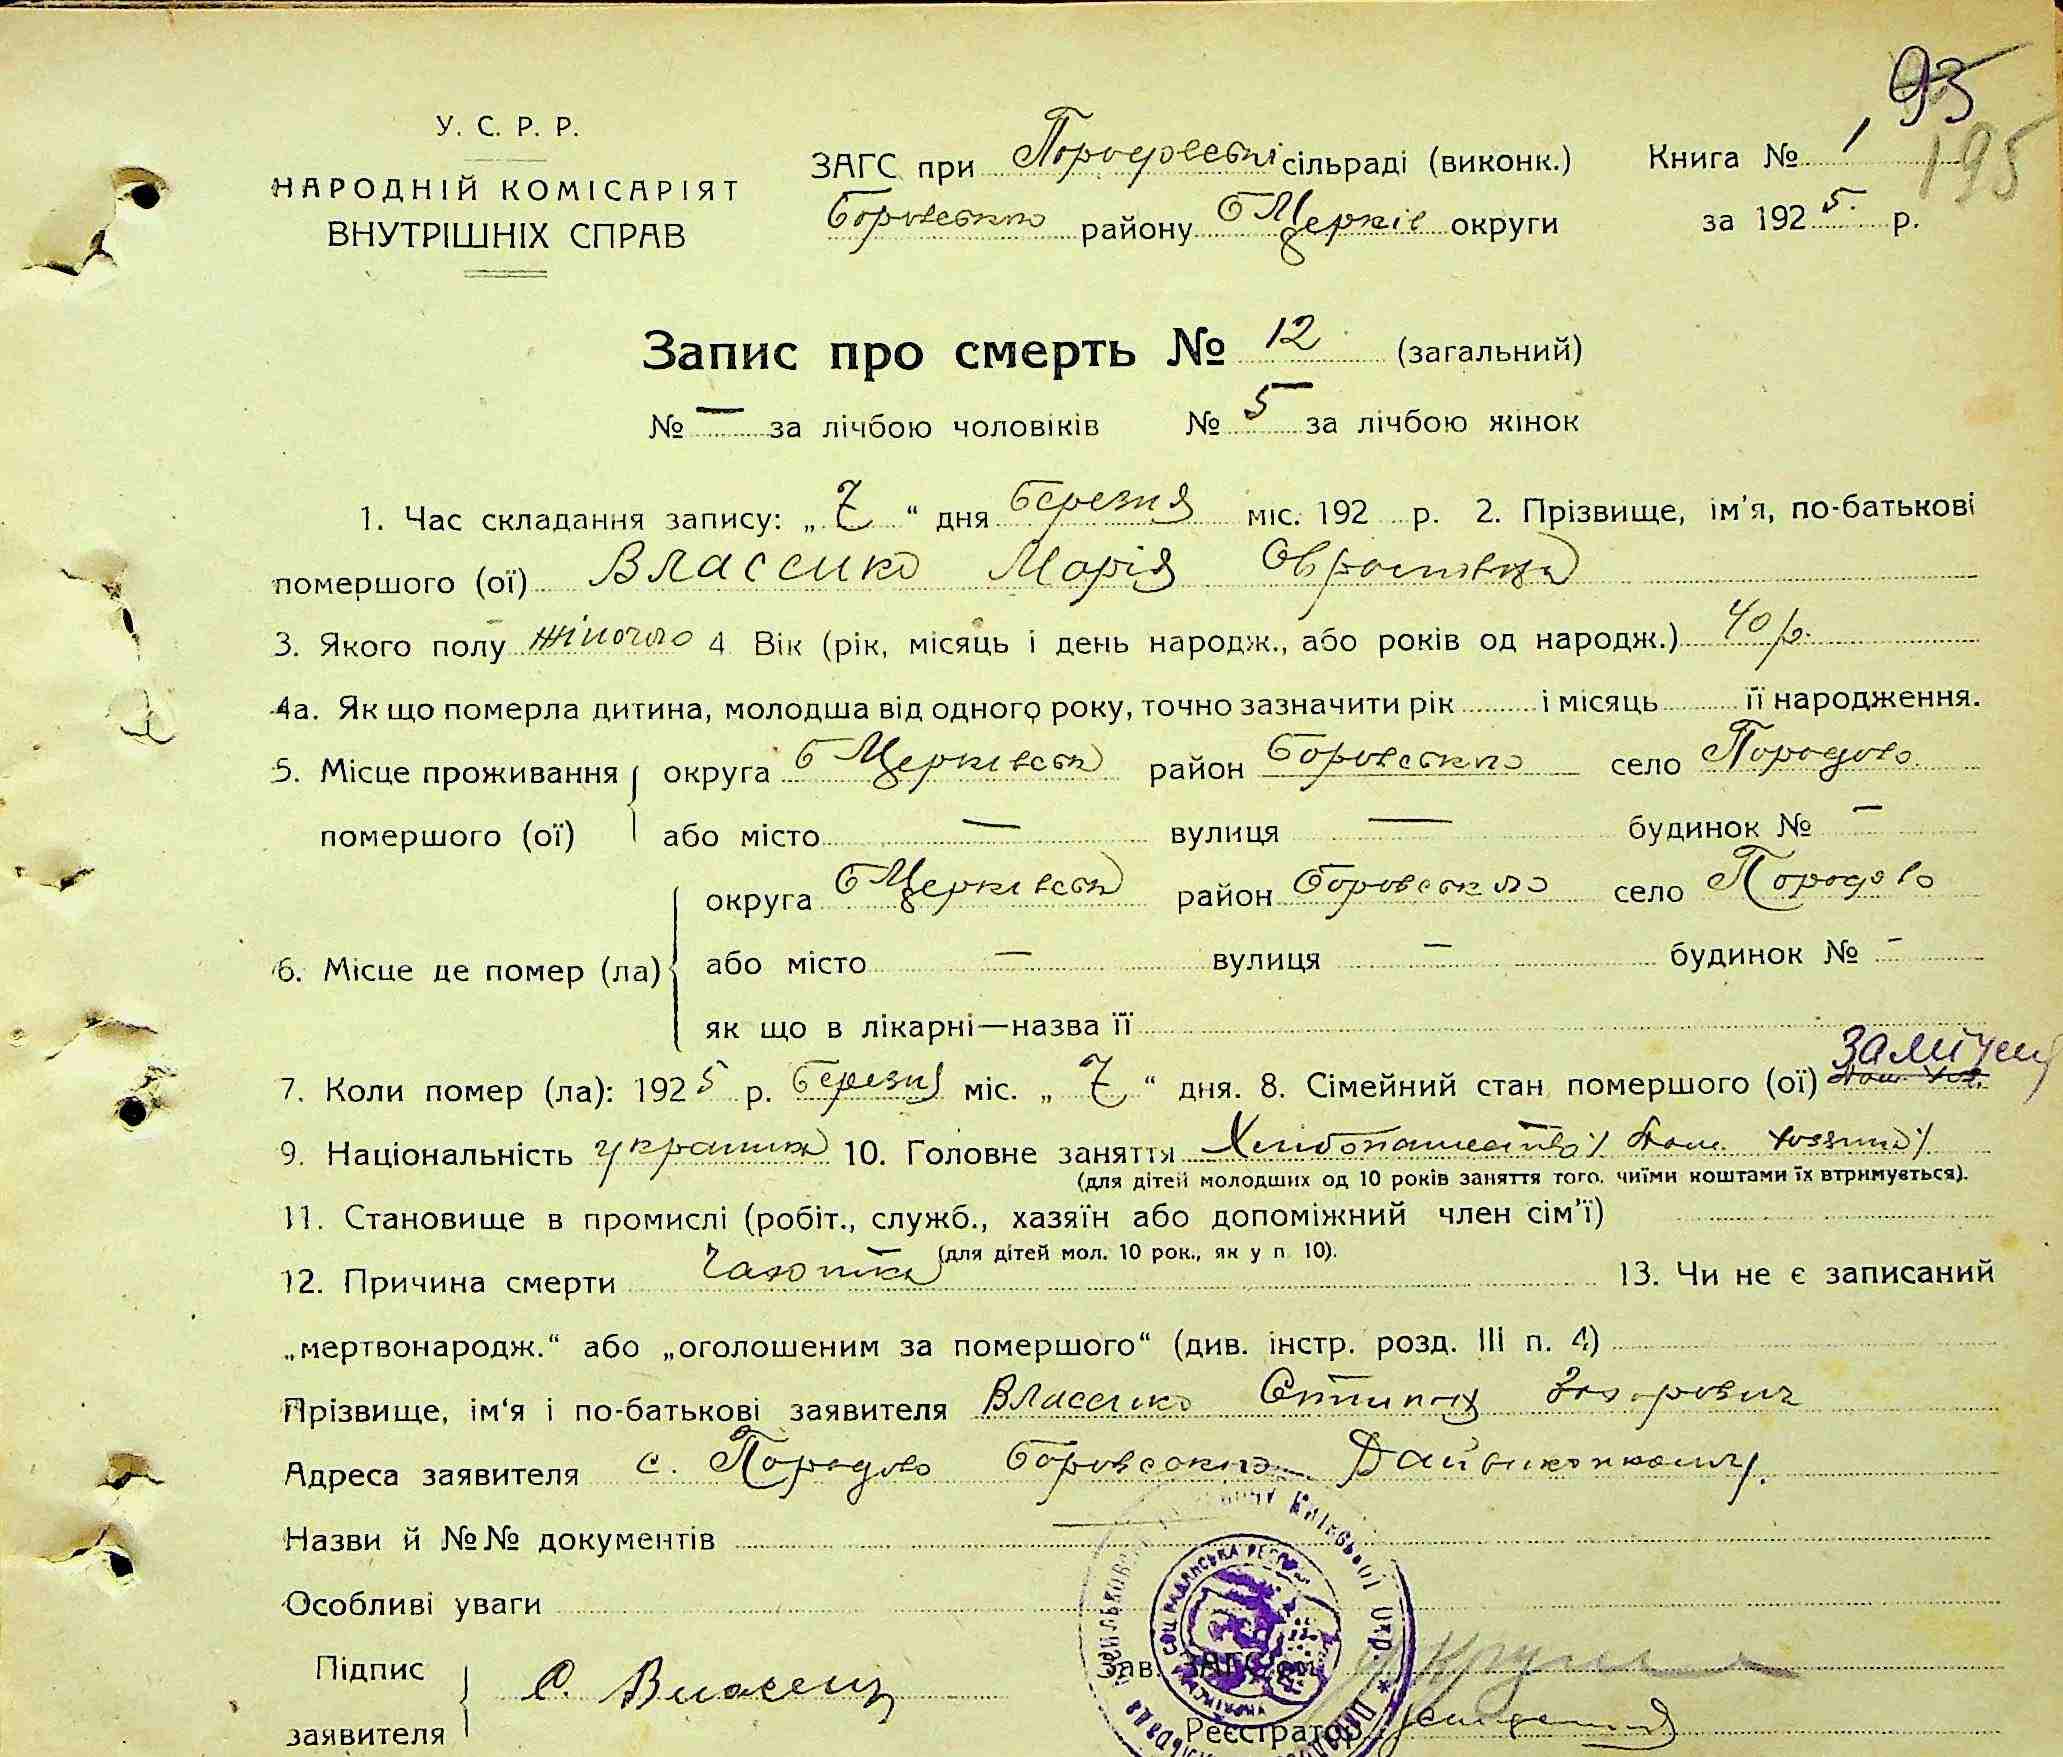 93
195
У. С. Р. Р.
НАРОДНІЙ КОМІСАРІЯТ
ВНУТРІШНІХ СПРАВ
ЗАГС при сільраді (виконк.) Книга № 1
району Б Церків округи за 1925 р.
Запис про смерть № 12 (загальний)
№ — за лічбою чоловіків № 5 за лічбою жінок
1. Час складання запису: „7“ дня березня міс. 192 р. 2. Прізвище, ім'я, по-батькові
помершого (ої) Власенко Марія
3. Якого полу жіночого 4 Вік (рік, місяць і день народж., або років од народж.) 40 р.
4а. Як що померла дитина, молодша від одного року, точно зазначити рік і місяць її народження.
5. Місце проживання округа Б Церківська район Боровського село Порадово
помершого (ої) або місто — вулиця — будинок № —
округа Б Церківська район Боровського село Порадово
6. Місце де помер (ла) або місто — вулиця — будинок № -
як що в лікарні—назва її
7. Коли помер (ла): 1925 р. березня міс. „7“ дня. 8. Сімейний стан помершого (ої) замужня
9. Національність українка 10. Головне заняття Хліборобство
(для дітей молодших од 10 років заняття того, чиїми коштами їх втримується).
11. Становище в промислі (робіт., служб., хазяїн або допоміжний член сім'ї)
(для дітей мол. 10 рок., як у п. 10).
12. Причина смерти чахотка 13. Чи не є записаний
„мертвонародж.“ або „оголошеним за помершого“ (див. інстр. розд. III п. 4)
Прізвище, ім'я і по-батькові заявителя Власенко Степан Захарович
Адреса заявителя с. Порадово Боровського
Назви й №№ документів —
Особливі уваги
Підпис
заявителя С. Власенко
Зав. ЗАГС'ом
Реєстратор